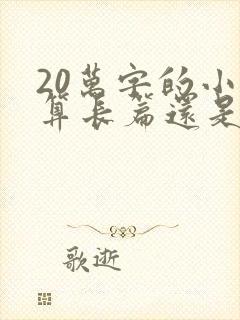 20萬字的小
算長篇還是
歌逝